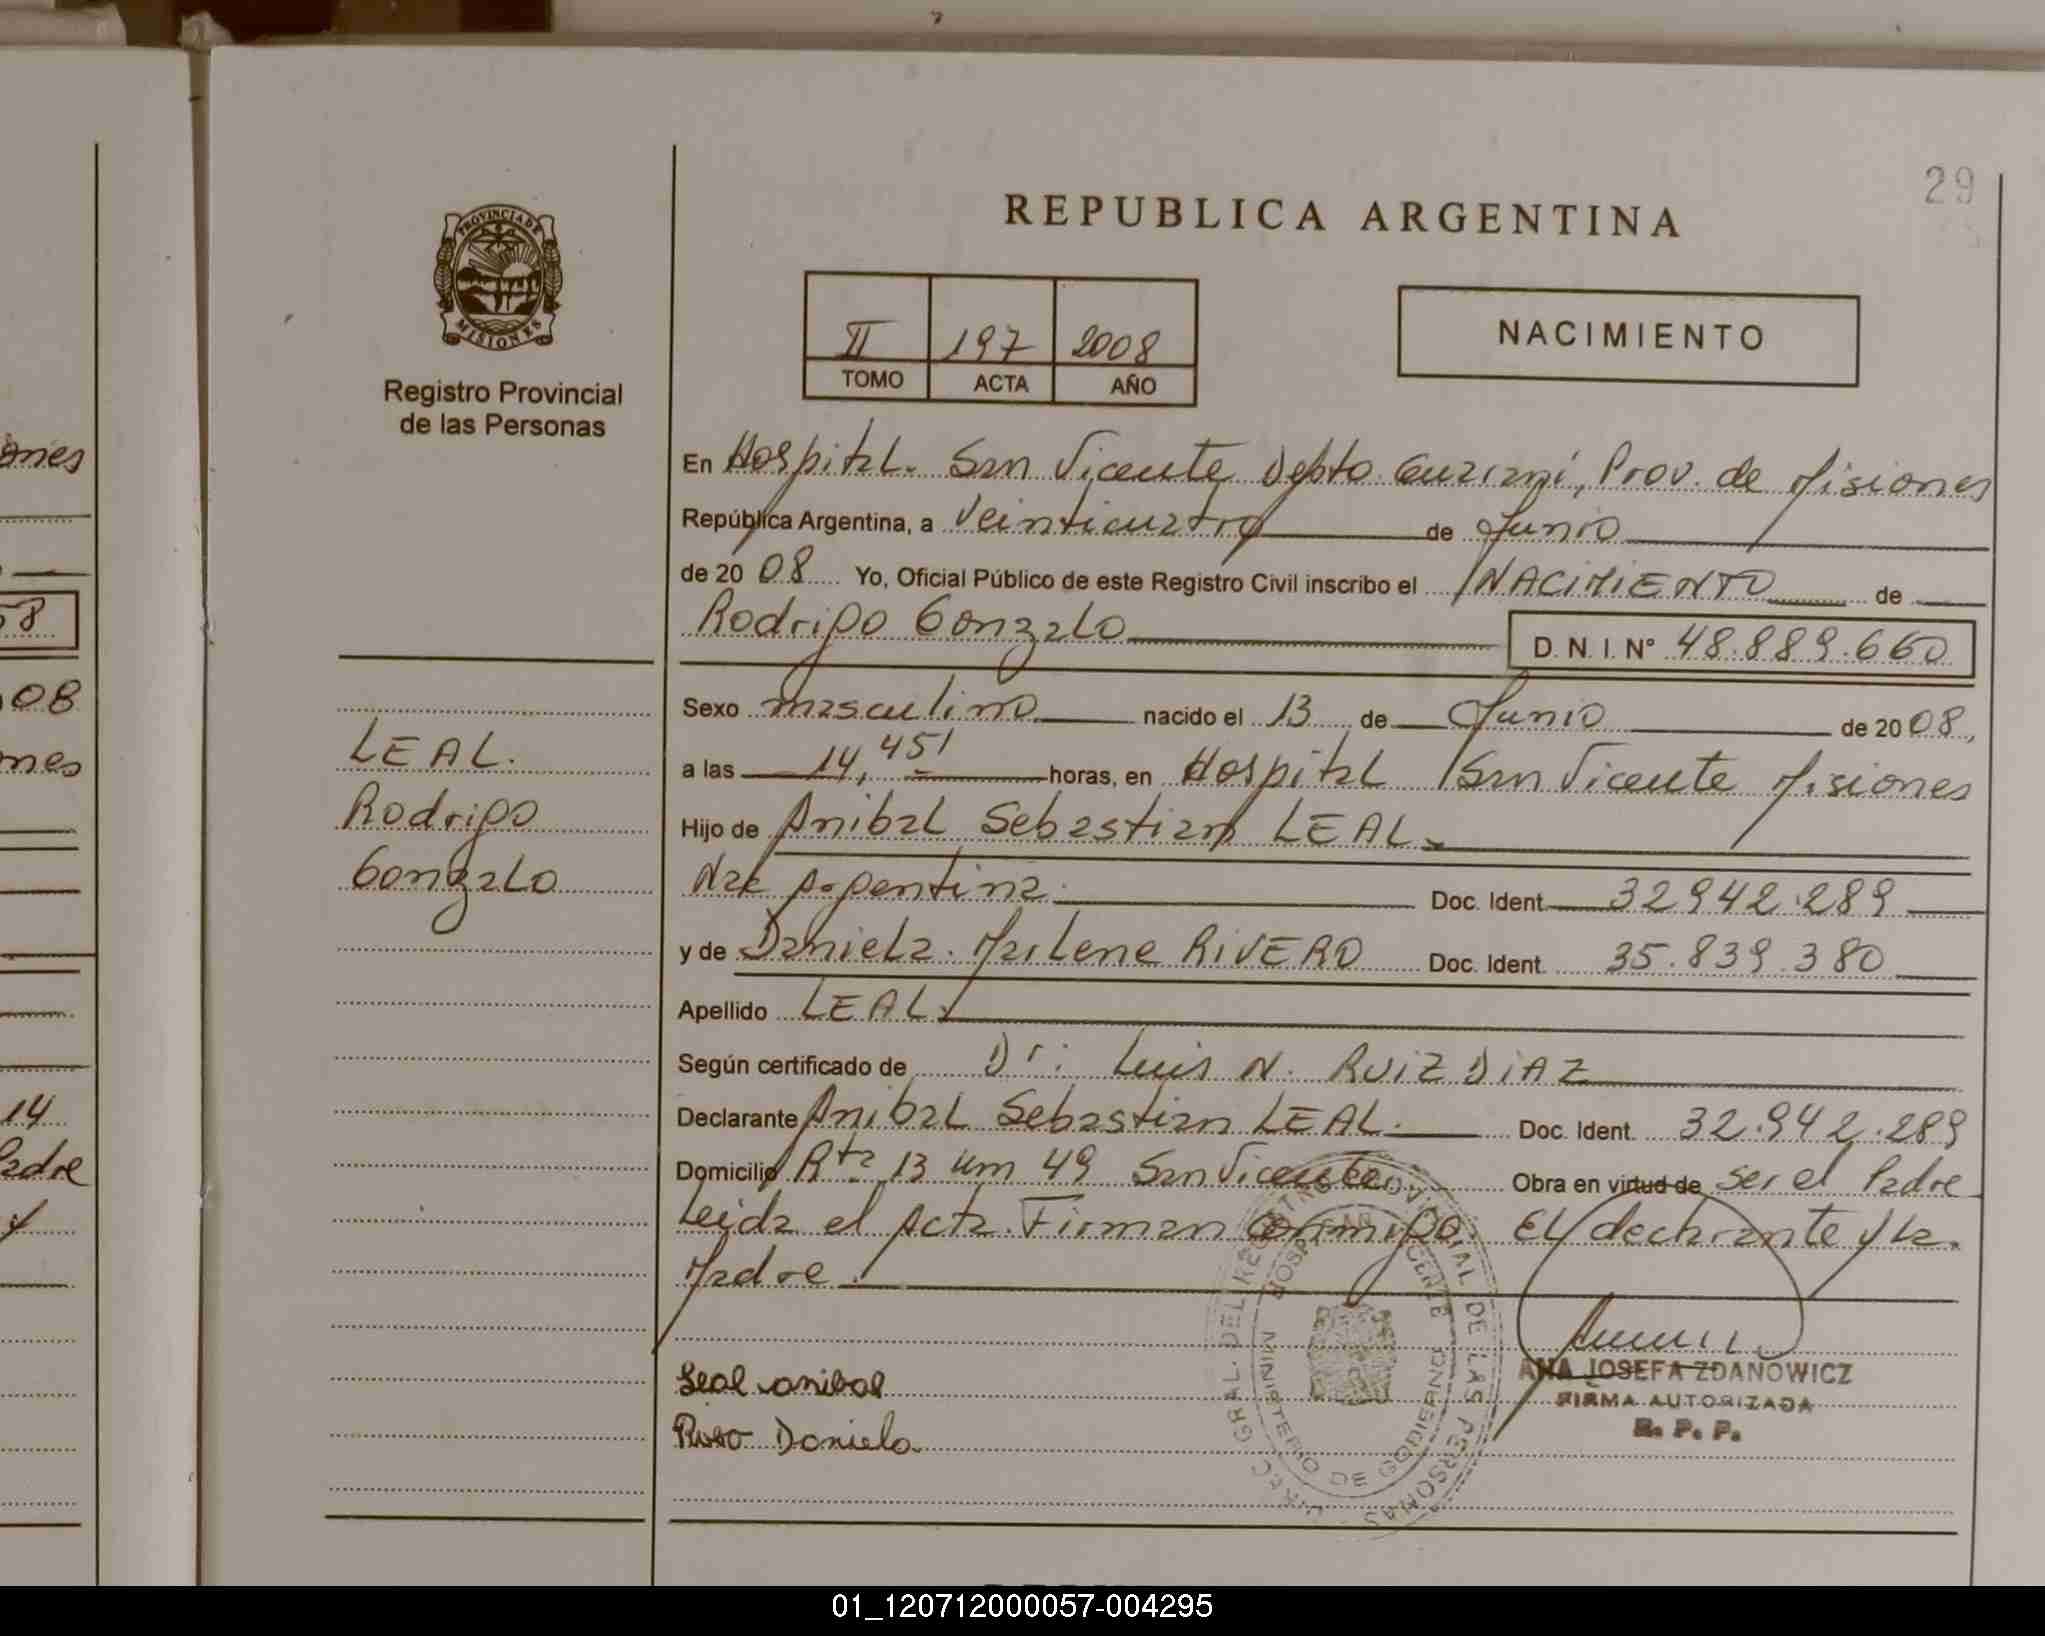 29
REPUBLICA ARGENTINA
PROVINCIA DE
MISIONES
Registro Provincial
de las Personas
II 197 2008
TOMO ACTA AÑO
NACIMIENTO
En Hospital. San Vicente Depto. Guarani, Prov. de Misiones
República Argentina, a Veinticuatro de Junio
de 20 08 Yo, Oficial Público de este Registro Civil inscribo el NACIMIENTO de
Rodrigo Gonzalo D. N. I. N° 48.889.660
Sexo masculino nacido el 13 de Junio de 20 08,
a las 14,45' horas, en Hospital San Vicente Misiones
Hijo de Anibal Sebastian LEAL.
Nac Argentina. Doc. Ident. 32942.289
y de Daniela. Marlene RIVERO Doc. Ident. 35.839.380
Apellido LEAL.
Según certificado de Dr: Luis N. RUIZ DIAZ
Declarante Anibal Sebastian LEAL. Doc. Ident. 32.942.289
Domicilio Rta 13 Km 49 San Vicente Obra en virtud de ser el Padre
Leida el Acta. Firman conmigo. El declarante y la.
Madre.
LEAL.
Rodrigo
Gonzalo
Leal anibal
Daniela.
ANA JOSEFA ZDANOWICZ
FIRMA AUTORIZADA
R. P. P.
MINISTERIO DE GOBIERNO
ones
58
08
ones
14
Padre
y
01_120712000057-004295